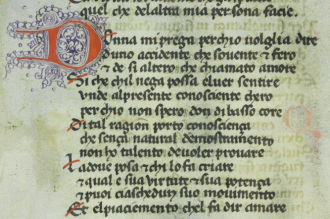 quel che delaltrui mia persona facie.
Donna mi prega perchio volglia dire
duno accidente che sovente & fero
& e si altero che chiamato amore
Si che chil nega possa el ver sentire
Vnde alpresente conosciente chero
per chio non spero don di basso core
Di tal ragion porto conoscença
che sença natural demostramento
non ho talento deuoler prouare
La doue posa & chi lo fa criare
& qual e sua virtute & sua potença
& poi ciaschedun suo mouimento
Et el piacimento chel fa dir amare